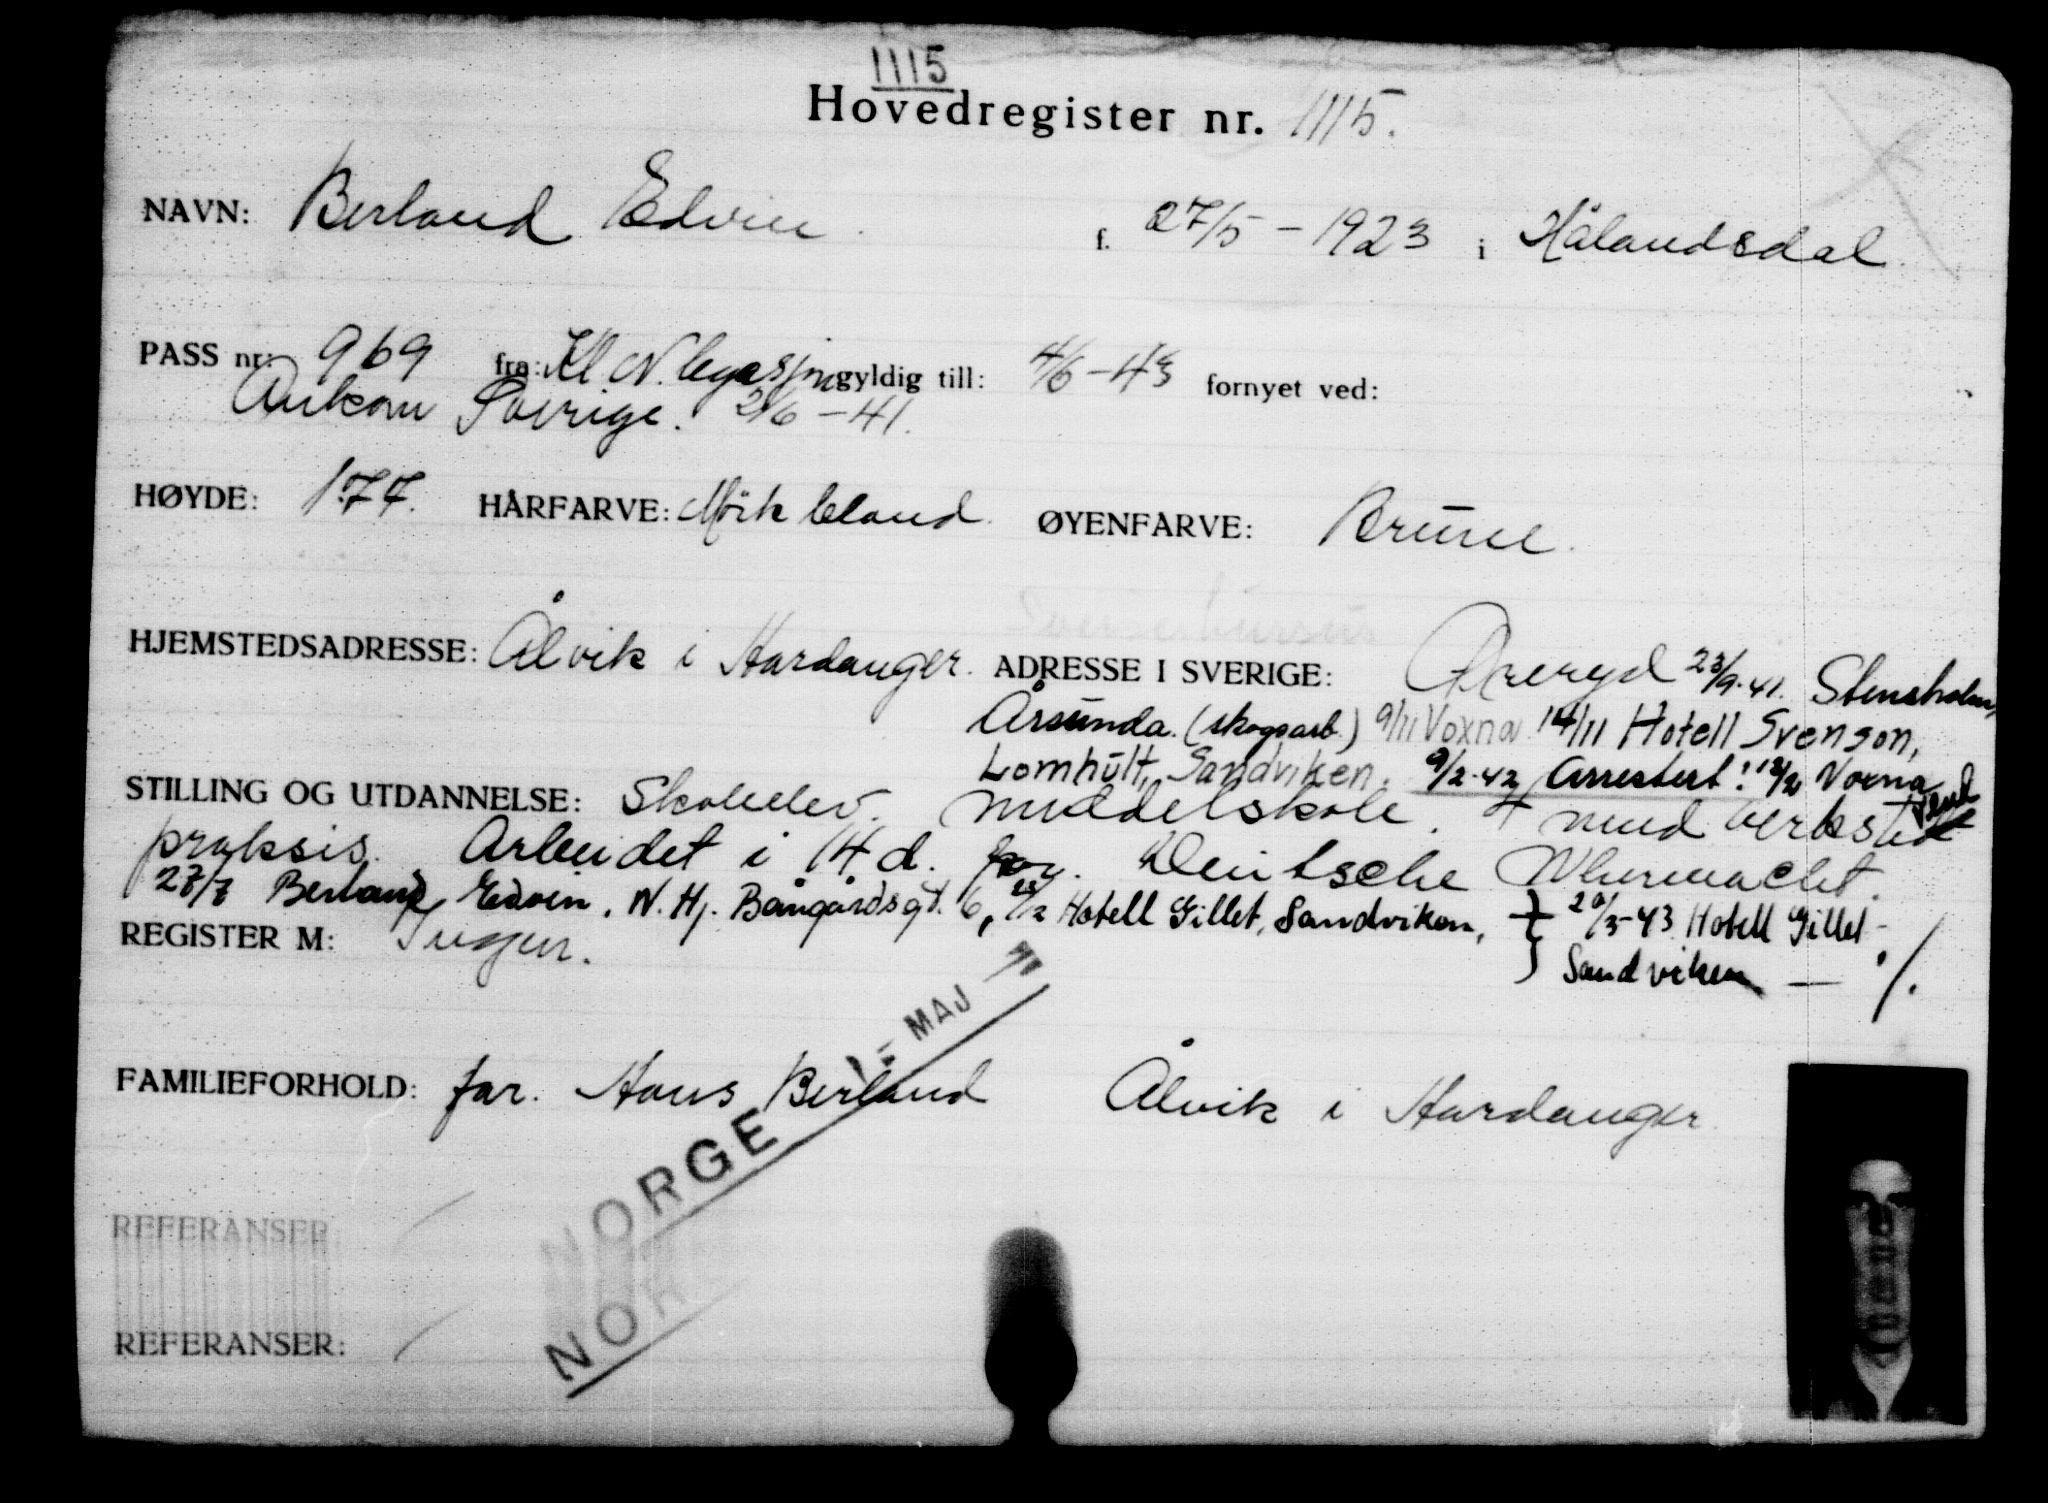 1115
Hovedregister nr. 1115.
NAVN: Berland Edvin. f. 27/5 - 1923 i Hålandsdal.
PASS nr: 969 fra: Kl N. legasjon gyldig till: 4/6 - 43 fornyet ved:
Ankom Sverige. 2/6 - 41.
HØYDE: 1.77. HÅRFARVE: Mörk blond. ØYENFARVE: Brune.
HJEMSTEDSADRESSE: Ålvik i Hardanger. ADRESSE I SVERIGE: Öreryd 23/9-41. Stensholm,
Årsunda. (skogsarb.) 9/11 Voxna 14/11 Hotell Svenson,
Lomhült, Sandviken. 9/2-42 Arrestert! 12/2 Voxna
STILLING OG UTDANNELSE: Skoleelev. middelskole. + med verksted
praksis. Arbeidet i 14 d. for. Deutsche Whermacht.
27/7 Berland, Edvin, N. Hj. Bångårdsgt. 6, Hotell Gillet, Sandviken, 20/3-43 Hotell Gillet-
REGISTER M: Ingen. Sandviken — ./.
- MAJ
FAMILIEFORHOLD: far. Hans Berland Ålvik i Hardanger
NORGE
REFERANSER
NOR
REFERANSER: